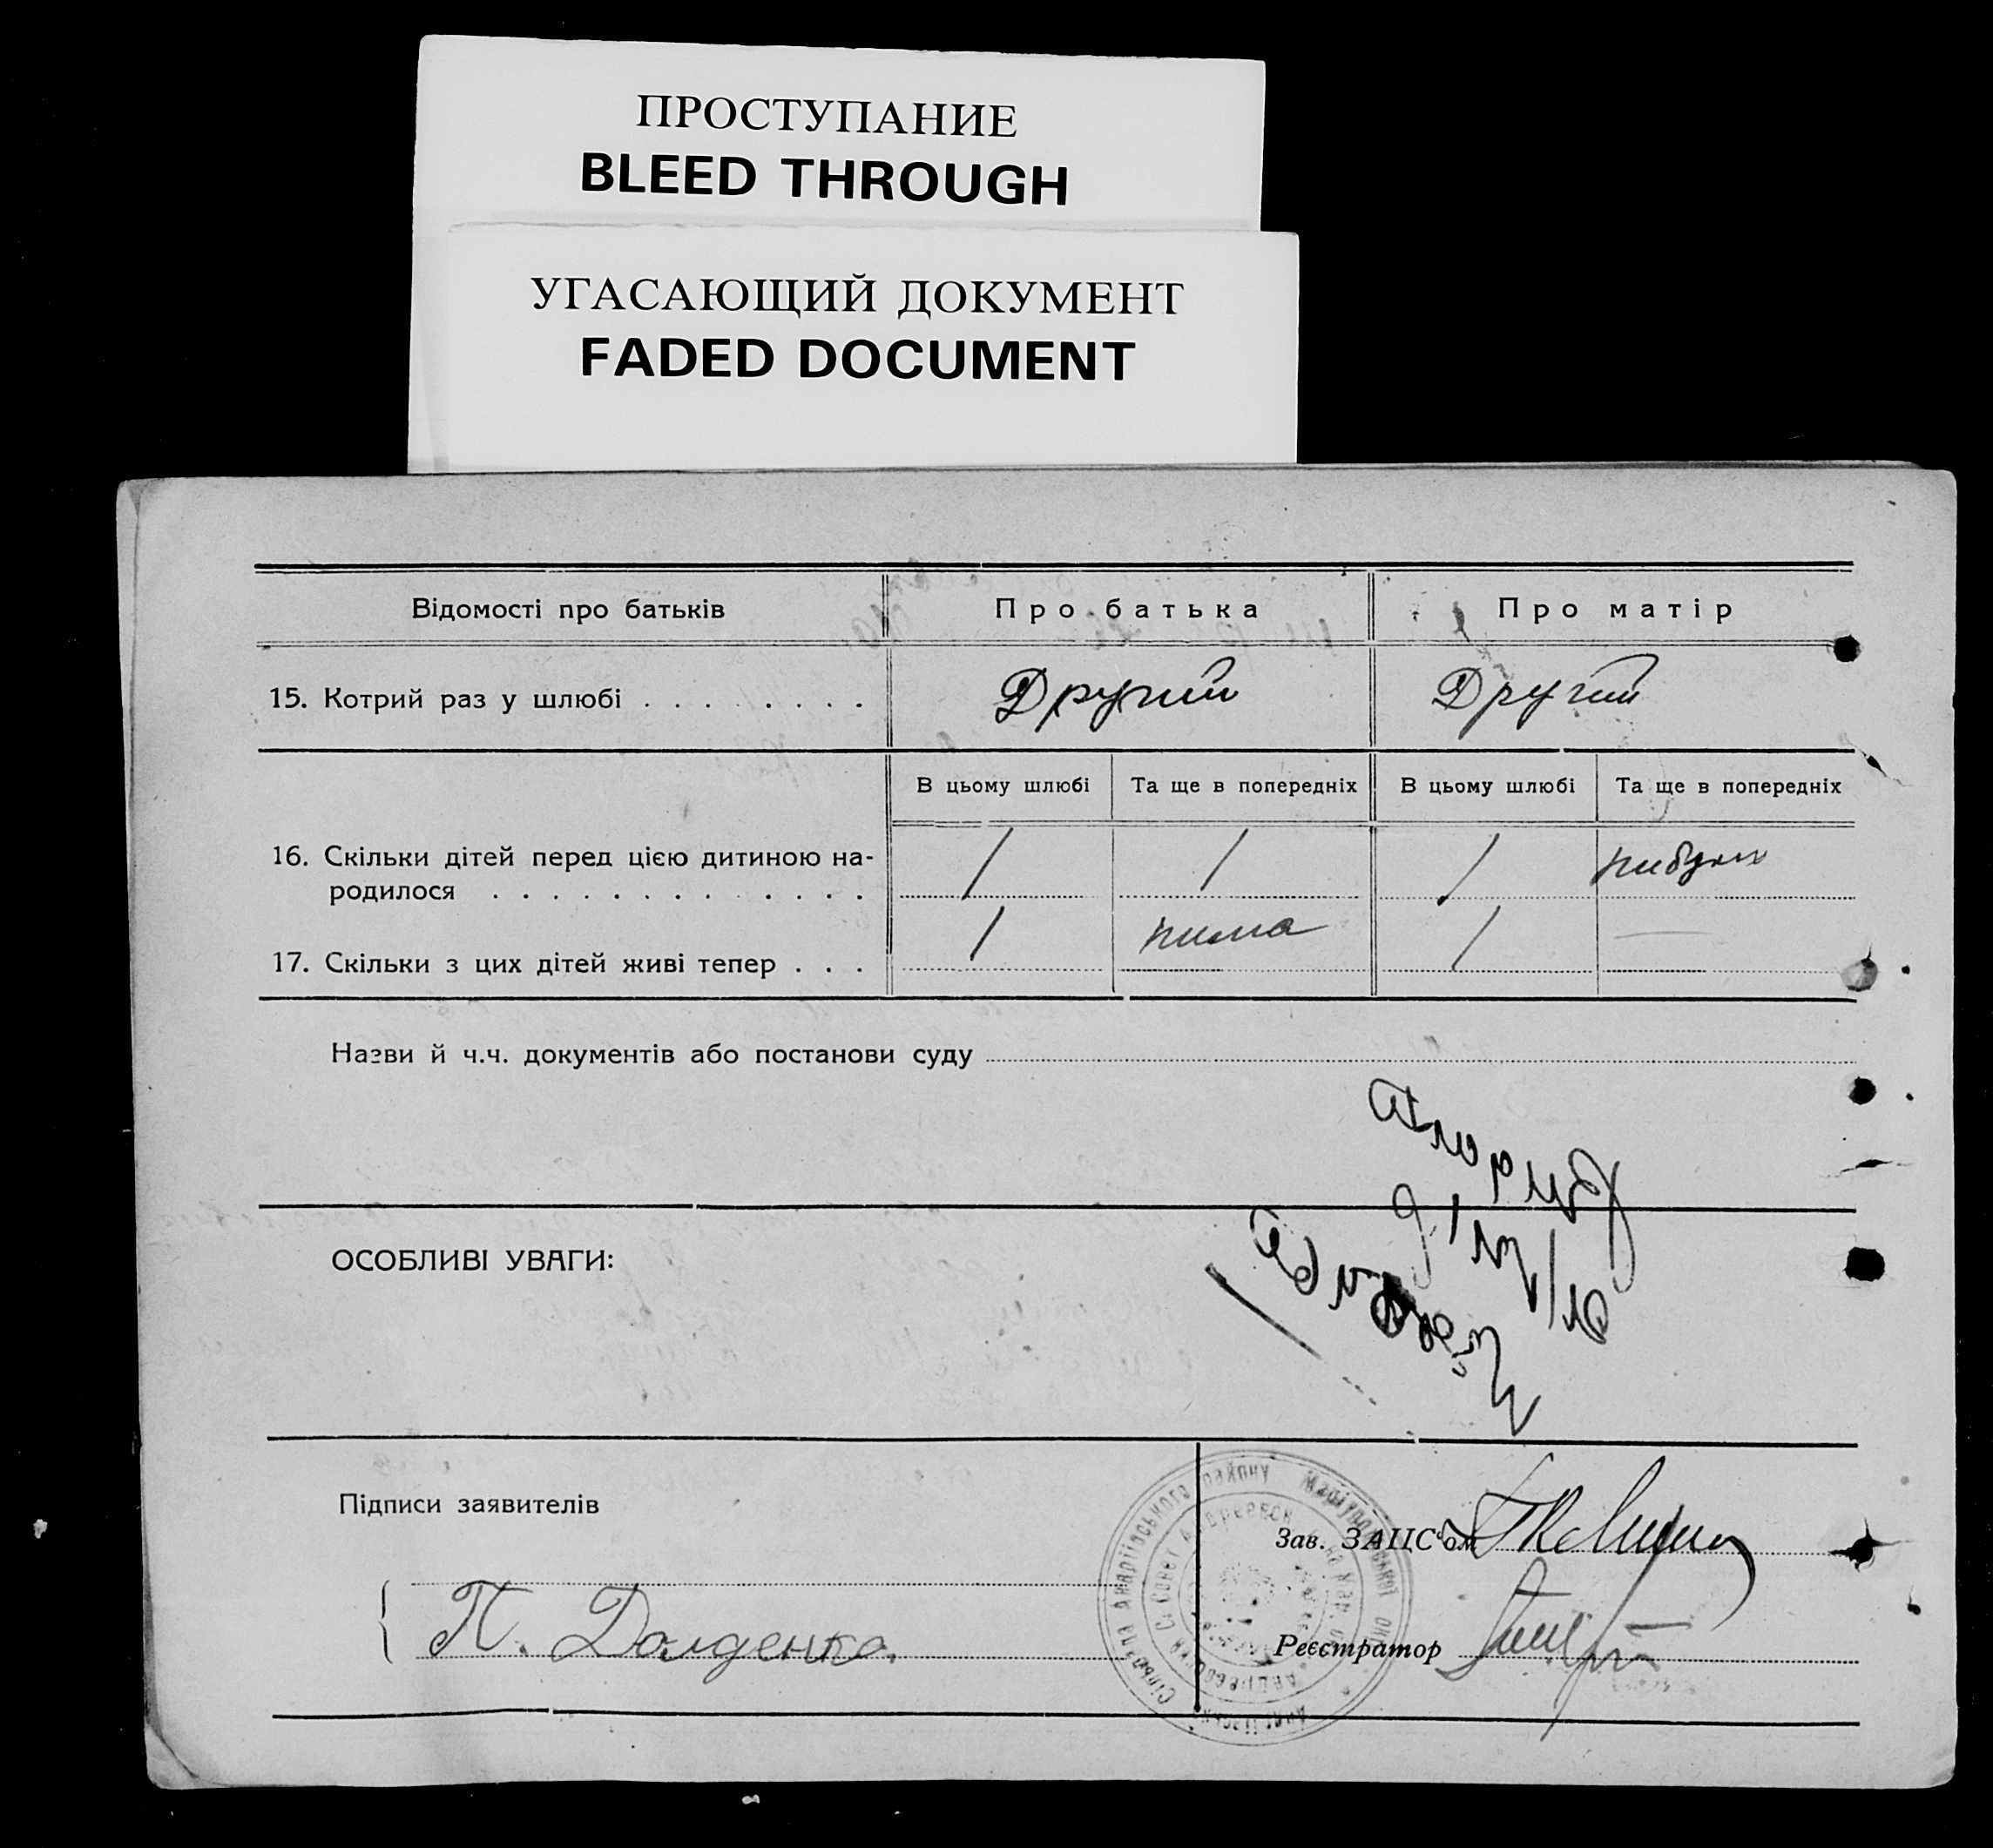 ПРОСТУПАНИЕ
BLEED THROUGH
УГАСАЮЩИЙ ДОКУМЕНТ
FADED DOCUMENT
Відомості про батьків Про батька Про матір
15. Котрий раз у шлюбі . . . . . . . . Другий Другий
В цьому шлюбі Та ще в попередніх В цьому шлюбі Та ще в попередніх
16. Скільки дітей перед цією дитиною на-
родилося . . . . . . . . . . . . . / / /
17. Скільки з цих дітей живі тепер . . . / нима / —
Назви й ч.ч. документів або постанови суду
ОСОБЛИВІ УВАГИ:
Підписи заявителів
Зав. ЗАЦС'ом
П. Долденко.
Реєстратор
району